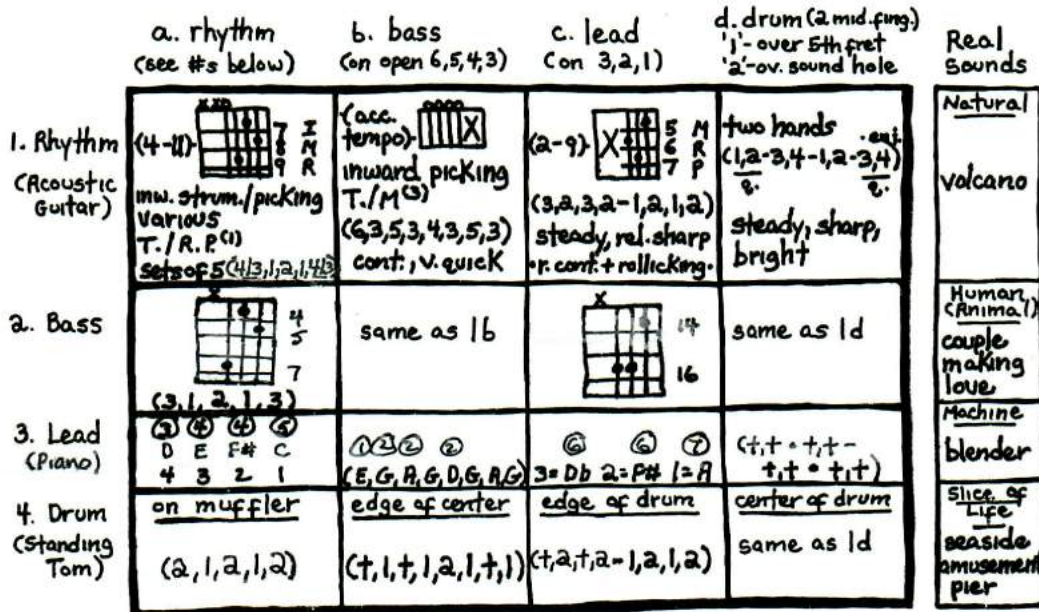 a. rhythm
(see #s below)
b. bass
(on open 6,5,4,3)
c. lead
(on 3,2,1)
d. drum (2 mid. fing.)
'1'- over 5th fret
'2'-ov. sound hole
Real
Sounds
1. Rhythm
(Acoustic
Guitar)
xxo
(4-11)-
7 I
8 M
9 R
inw. strum./picking
various
T./R.P.(1)
sets of 5 (4/3,1,2,1,4/3)
oooo
(acc.
tempo)-
X
inward picking
T./M(3)
(6,3,5,3,4,3,5,3)
cont., v. quick
(2-9)-
X
5 M
6 R
7 P
(3,2,3,2-1,2,1,2)
steady, rel. sharp
•r. cont. + rollicking•
two hands
(1,2-3,4-1,2-3,4)
steady, sharp,
bright
Natural
volcano
2. Bass
x
4
5
7
(3,1,2,1,3)
same as 1b
x
14
16
same as 1d
Human
(Animal)
couple
making
love
3. Lead
(Piano)
3 4 4 5
D E F# C
4 3 2 1
1 2 2 2
(E,G,A,G,D,G,A,G)
6 6 7
3=Db 2=F# 1=A
(t,t • t,t -
t,t • t,t)
Machine
blender
4. Drum
(Standing
Tom)
on muffler
(2,1,2,1,2)
edge of center
(t,1,t,1,2,1,t,1)
edge of drum
(t,2,t,2-1,2,1,2)
center of drum
same as 1d
Slice of
Life
seaside
amusement
pier